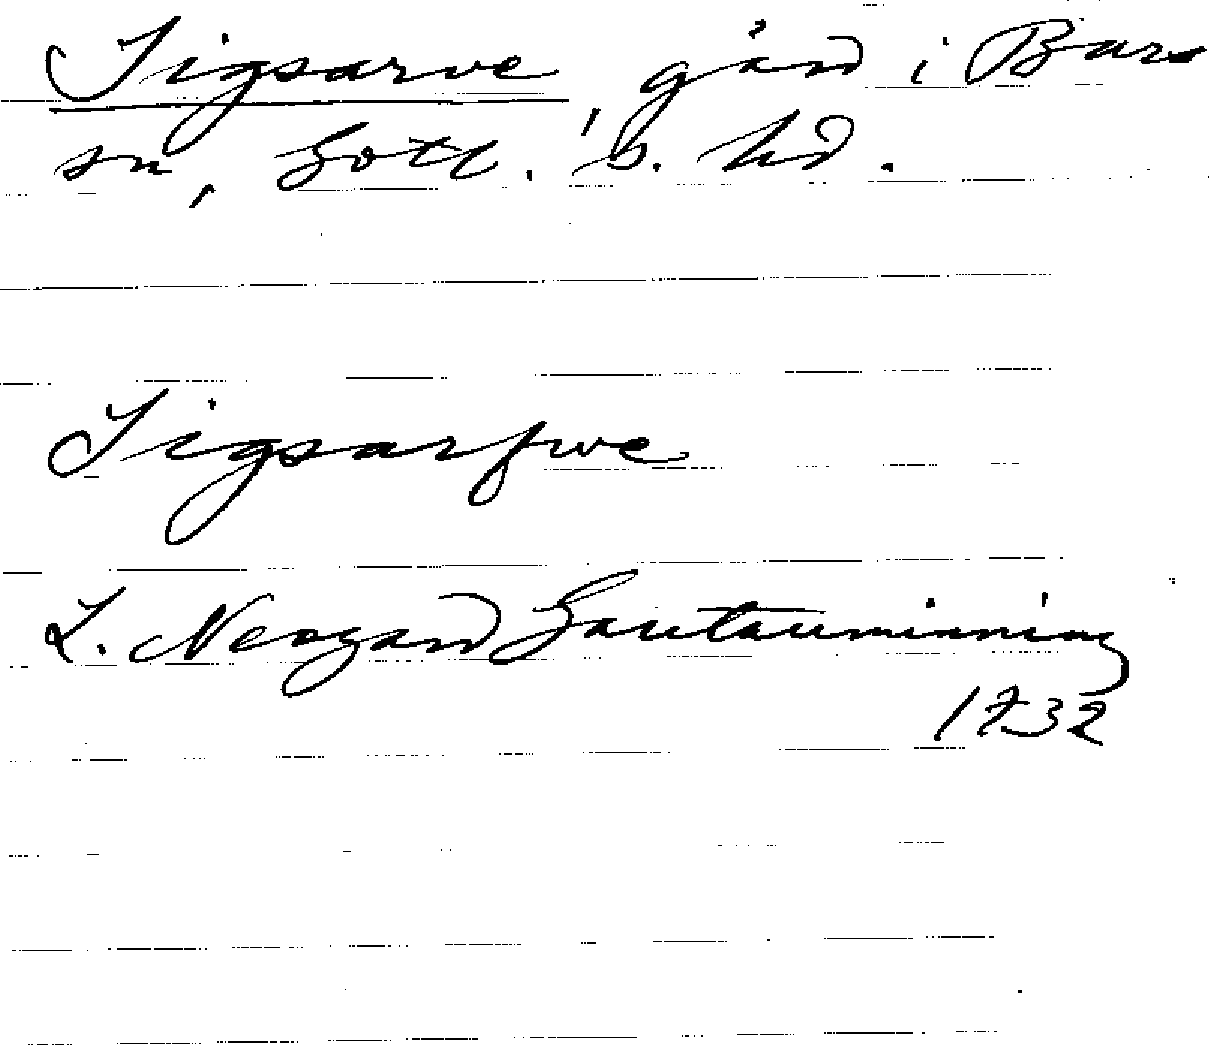 Sigsarve, gård i Burs
sn, Gotl. s. hd.
Sigsarfwe
L. Neogard Gautauminning
1732